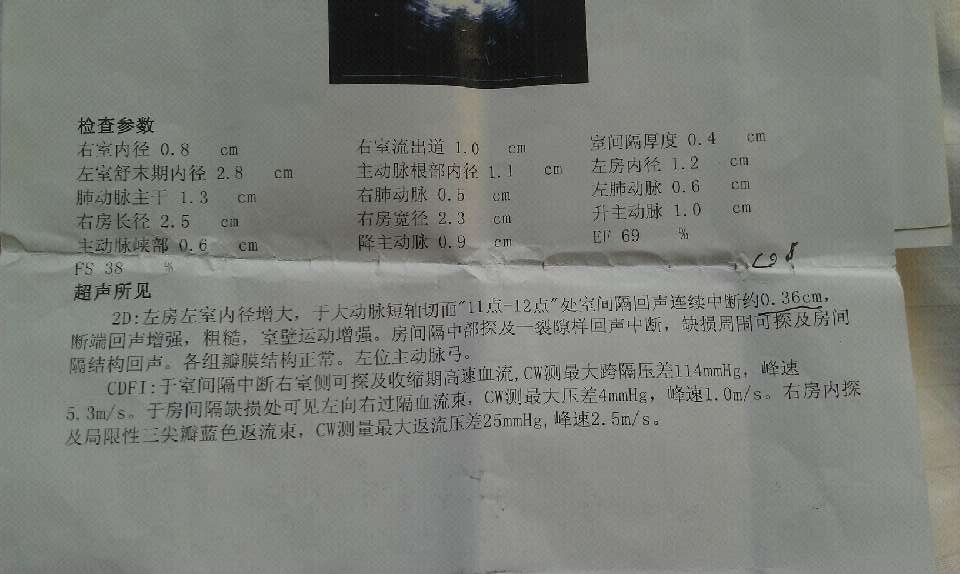 检查参数
右室内径 0.8 cm 右室流出道 1.0 cm 室间隔厚度 0.4 cm
左室舒末期内径 2.8 cm 主动脉根部内径 1.1 cm 左房内径 1.2 cm
肺动脉主干 1.3 cm 右肺动脉 0.5 cm 左肺动脉 0.6 cm
右房长径 2.5 cm 右房宽径 2.3 cm 升主动脉 1.0 cm
主动脉峡部 0.6 cm 降主动脉 0.9 cm EF 69 %
FS 38 %
超声所见
2D:左房左室内径增大，于大动脉短轴切面"11点-12点"处室间隔回声连续中断约0.36cm，
断端回声增强，粗糙，室壁运动增强。房间隔中部探及一裂隙样回声中断，缺损周围可探及房间
隔结构回声。各组瓣膜结构正常。左位主动脉弓。
CDFI:于室间隔中断右室侧可探及收缩期高速血流,CW测最大跨隔压差114mmHg，峰速
5.3m/s。于房间隔缺损处可见左向右过隔血流束，CW测最大压差4mmHg，峰速1.0m/s。右房内探
及局限性三尖瓣蓝色返流束，CW测量最大返流压差25mmHg,峰速2.5m/s。